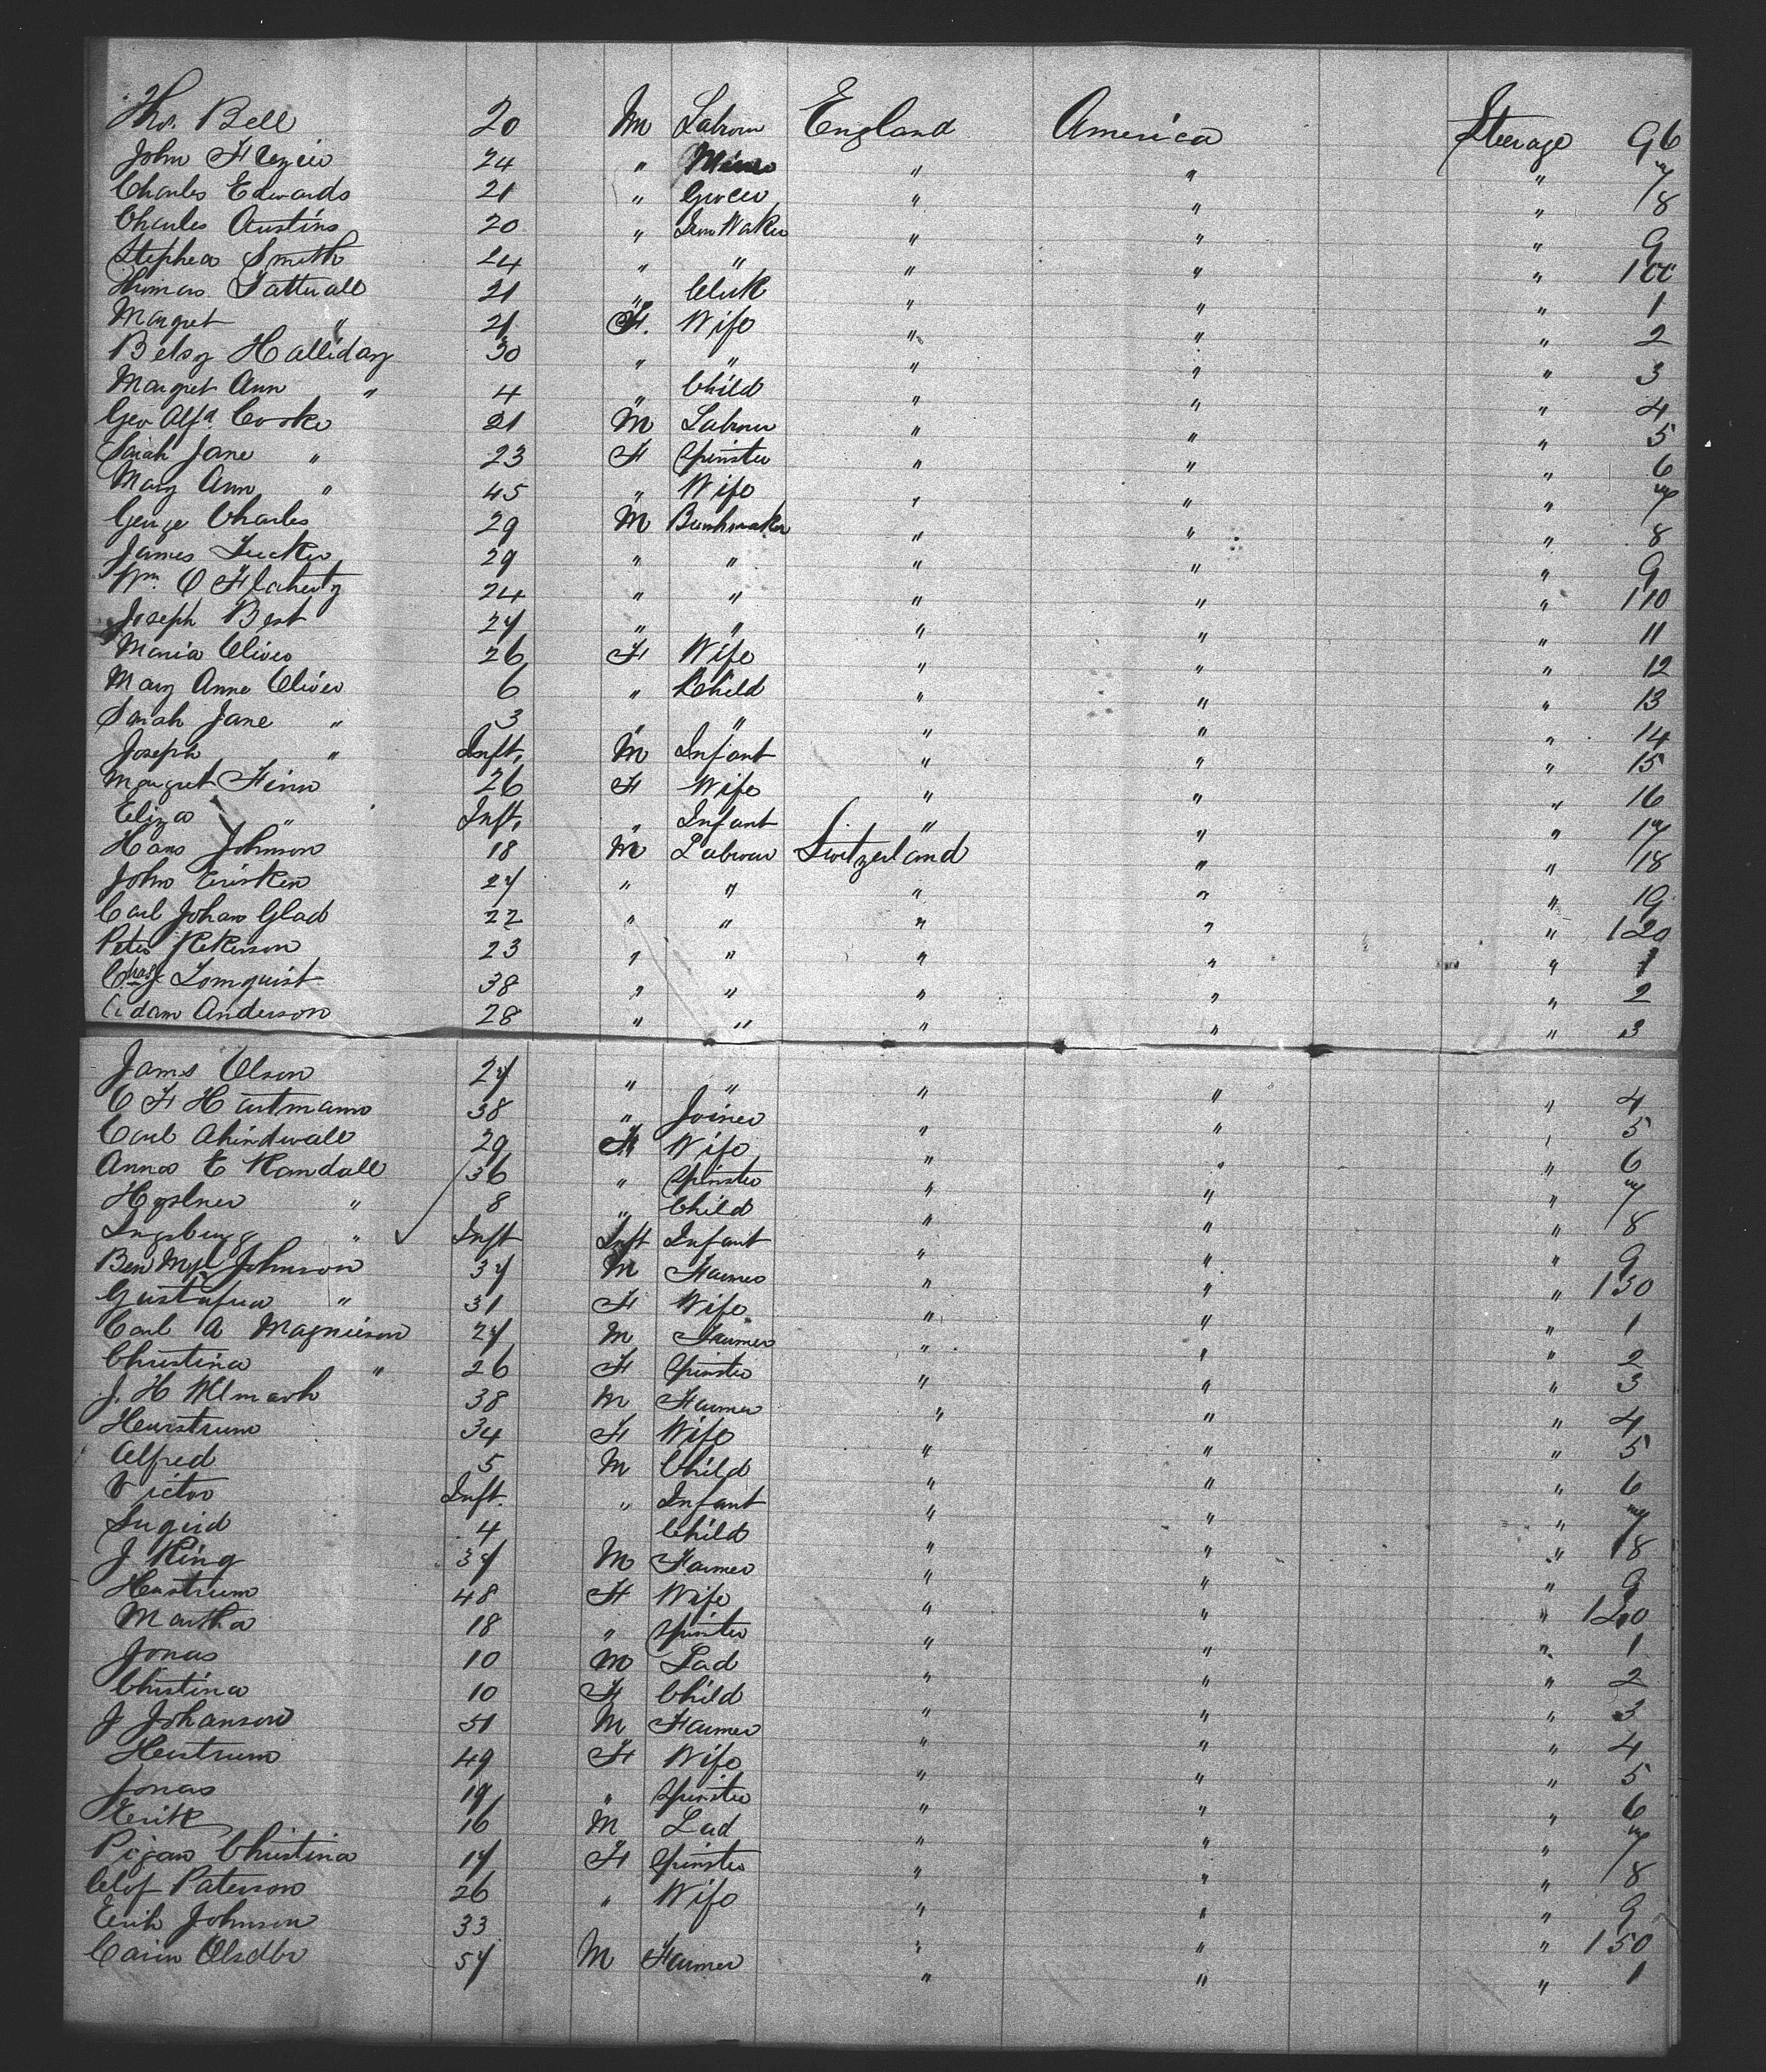 Thos. Bell 20 M Labrour England America Steerage 96
John 24 " " " " 7
Charles Edwards 21 " Grocer " " " 8
Charles Austins 20 " " " " 9
Stephen Smith 24 " " " " " 100
Thomas Tattersall 21 " Clerk " " " 1
Margret " 21 F. Wife " " " 2
Betsy Halliday 30 " " " " " 3
Margret Ann " 4 " Child " " " 4
Geo Alfd. Cooke 21 M Labrour " " " 5
Sarah Jane " 23 F Spinster " " " 6
Mary Ann " 45 " Wife " " " 7
George Charles 29 M Brushmaker " " " 8
James Tucker 29 " " " " " 9
Wm. O Flaherty 24 " " " " " 110
Joseph Best 27 " " " " " 11
Maria Oliver 26 F Wife " " " 12
Mary Anne Oliver 6 " Child " " " 13
Sarah Jane " 3 " " " " " 14
Joseph " Inft. M Infant " " " 15
Margret Finn 26 F Wife " " " 16
Eliza " Inft. " Infant " " " 17
Hans Johnson 18 M Labrour Switzerland " " 18
John Erisken 27 " " " " " 19
Carl Johan Glad 22 " " " " " 120
Peter Pekerson 23 " " " " " 1
Chas Lomquist 38 " " " " " 2
Adam Anderson 28 " " " " " 3
James Olson 27 " " " " " 4
C F Hartmann 38 " Joiner " " " 5
Carl 29 F Wife " " " 6
Anna E Randall 36 " Spinster " " " 7
" 8 " Child " " " 8
Ingeburg " Inft Inft Infant " " " 9
Ben Johnson 37 M Farmer " " " 130
Gustafva " 31 F Wife " " " 1
Carl A Magnieson 27 M Farmer " " " 2
Christina " 26 F Spinster " " " 3
J. H 38 M Farmer " " " 4
34 F Wife " " " 5
Alfred 5 M Child " " " 6
Victor Inft. " Infant " " " 7
4 Child " " " 8
J King 37 M Farmer " " " 9
48 F Wife " " "
Martha 18 " Spinster " " " 1
Jonas 10 M Lad " " " 2
Christina 10 F Child " " " 3
J Johanson 51 M Farmer " " " 4
49 F Wife " " " 5
Jonas 19 " Spinster " " " 6
Erik 16 M Lad " " " 7
Christina 17 F Spinster " " " 8
Olof Paterson 26 " Wife " " " 9
Erik Johnson 33 " " " 150
Carin Olsdbr 57 M Farmer " " " 1